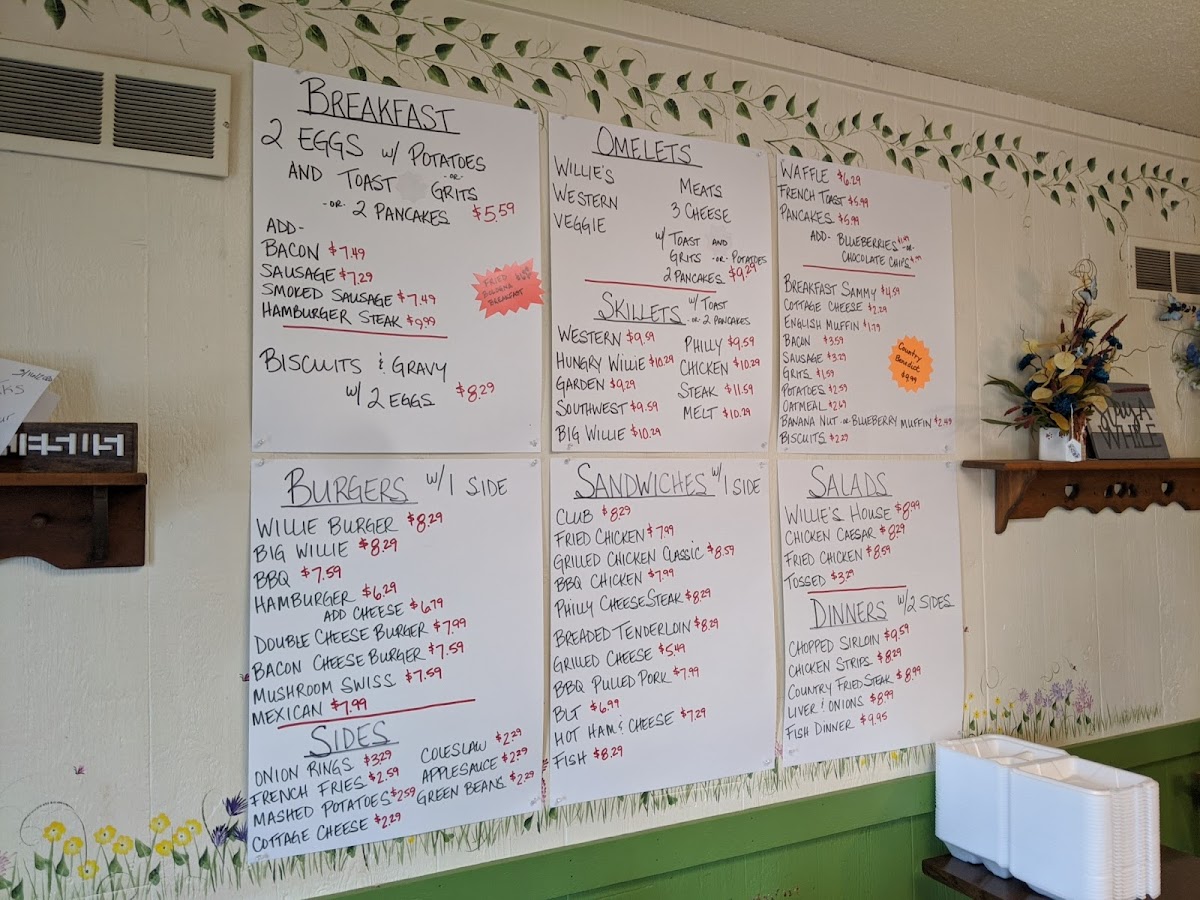 BREAKFAST
2 EGGS W/ POTATOES
-OR-
AND TOAST GRITS
-OR- 2 PANCAKES $5.59
ADD-
BACON $7.49
SAUSAGE $7.29
SMOKED SAUSAGE $7.49
HAMBURGER STEAK $9.99
FRIED
BOLOGNA
BREAKFAST
BISCUITS & GRAVY
W/ 2 EGGS $8.29
OMELETS
WILLIE'S
WESTERN
VEGGIE
MEATS
3 CHEESE
W/ TOAST AND
GRITS -OR- POTATOES
2 PANCAKES $9.29
SKILLETS W/ TOAST
-OR- 2 PANCAKES
WESTERN $9.59
HUNGRY WILLIE $10.29
GARDEN $9.29
SOUTHWEST $9.59
BIG WILLIE $10.29
PHILLY $9.59
CHICKEN $10.29
STEAK $11.59
MELT $10.29
WAFFLE $6.29
FRENCH TOAST $5.99
PANCAKES $5.99
ADD- BLUEBERRIES -OR-
CHOCOLATE CHIPS
BREAKFAST SAMMY $4.59
COTTAGE CHEESE $2.29
ENGLISH MUFFIN $1.79
BACON $3.59
SAUSAGE $3.29
GRITS $1.59
POTATOES $2.59
OATMEAL $2.69
BANANA NUT -OR- BLUEBERRY MUFFIN $2.49
BISCUITS $2.29
Country
Benedict
$9.99
BURGERS W/1 SIDE
WILLIE BURGER $8.29
BIG WILLIE $8.29
BBQ $7.59
HAMBURGER $6.29
ADD CHEESE $6.79
DOUBLE CHEESE BURGER $7.99
BACON CHEESE BURGER $7.59
MUSHROOM SWISS $7.59
MEXICAN $7.99
SIDES
ONION RINGS $3.29
FRENCH FRIES $2.59
MASHED POTATOES $2.59
COTTAGE CHEESE $2.29
COLESLAW $2.29
APPLESAUCE $2.29
GREEN BEANS $2.29
SANDWICHES W/1 SIDE
CLUB $8.29
FRIED CHICKEN $7.99
GRILLED CHICKEN CLASSIC $8.59
BBQ CHICKEN $7.99
PHILLY CHEESE STEAK $8.29
BREADED TENDERLOIN $8.29
GRILLED CHEESE $5.49
BBQ PULLED PORK $7.99
BLT $6.99
HOT HAM & CHEESE $7.29
FISH $8.29
SALADS
WILLIE'S HOUSE $8.99
CHICKEN CAESAR $8.29
FRIED CHICKEN $8.59
TOSSED $3.29
DINNERS W/2 SIDES
CHOPPED SIRLOIN $9.59
CHICKEN STRIPS $8.29
COUNTRY FRIED STEAK $8.99
LIVER & ONIONS $8.99
FISH DINNER $9.95
WHILE